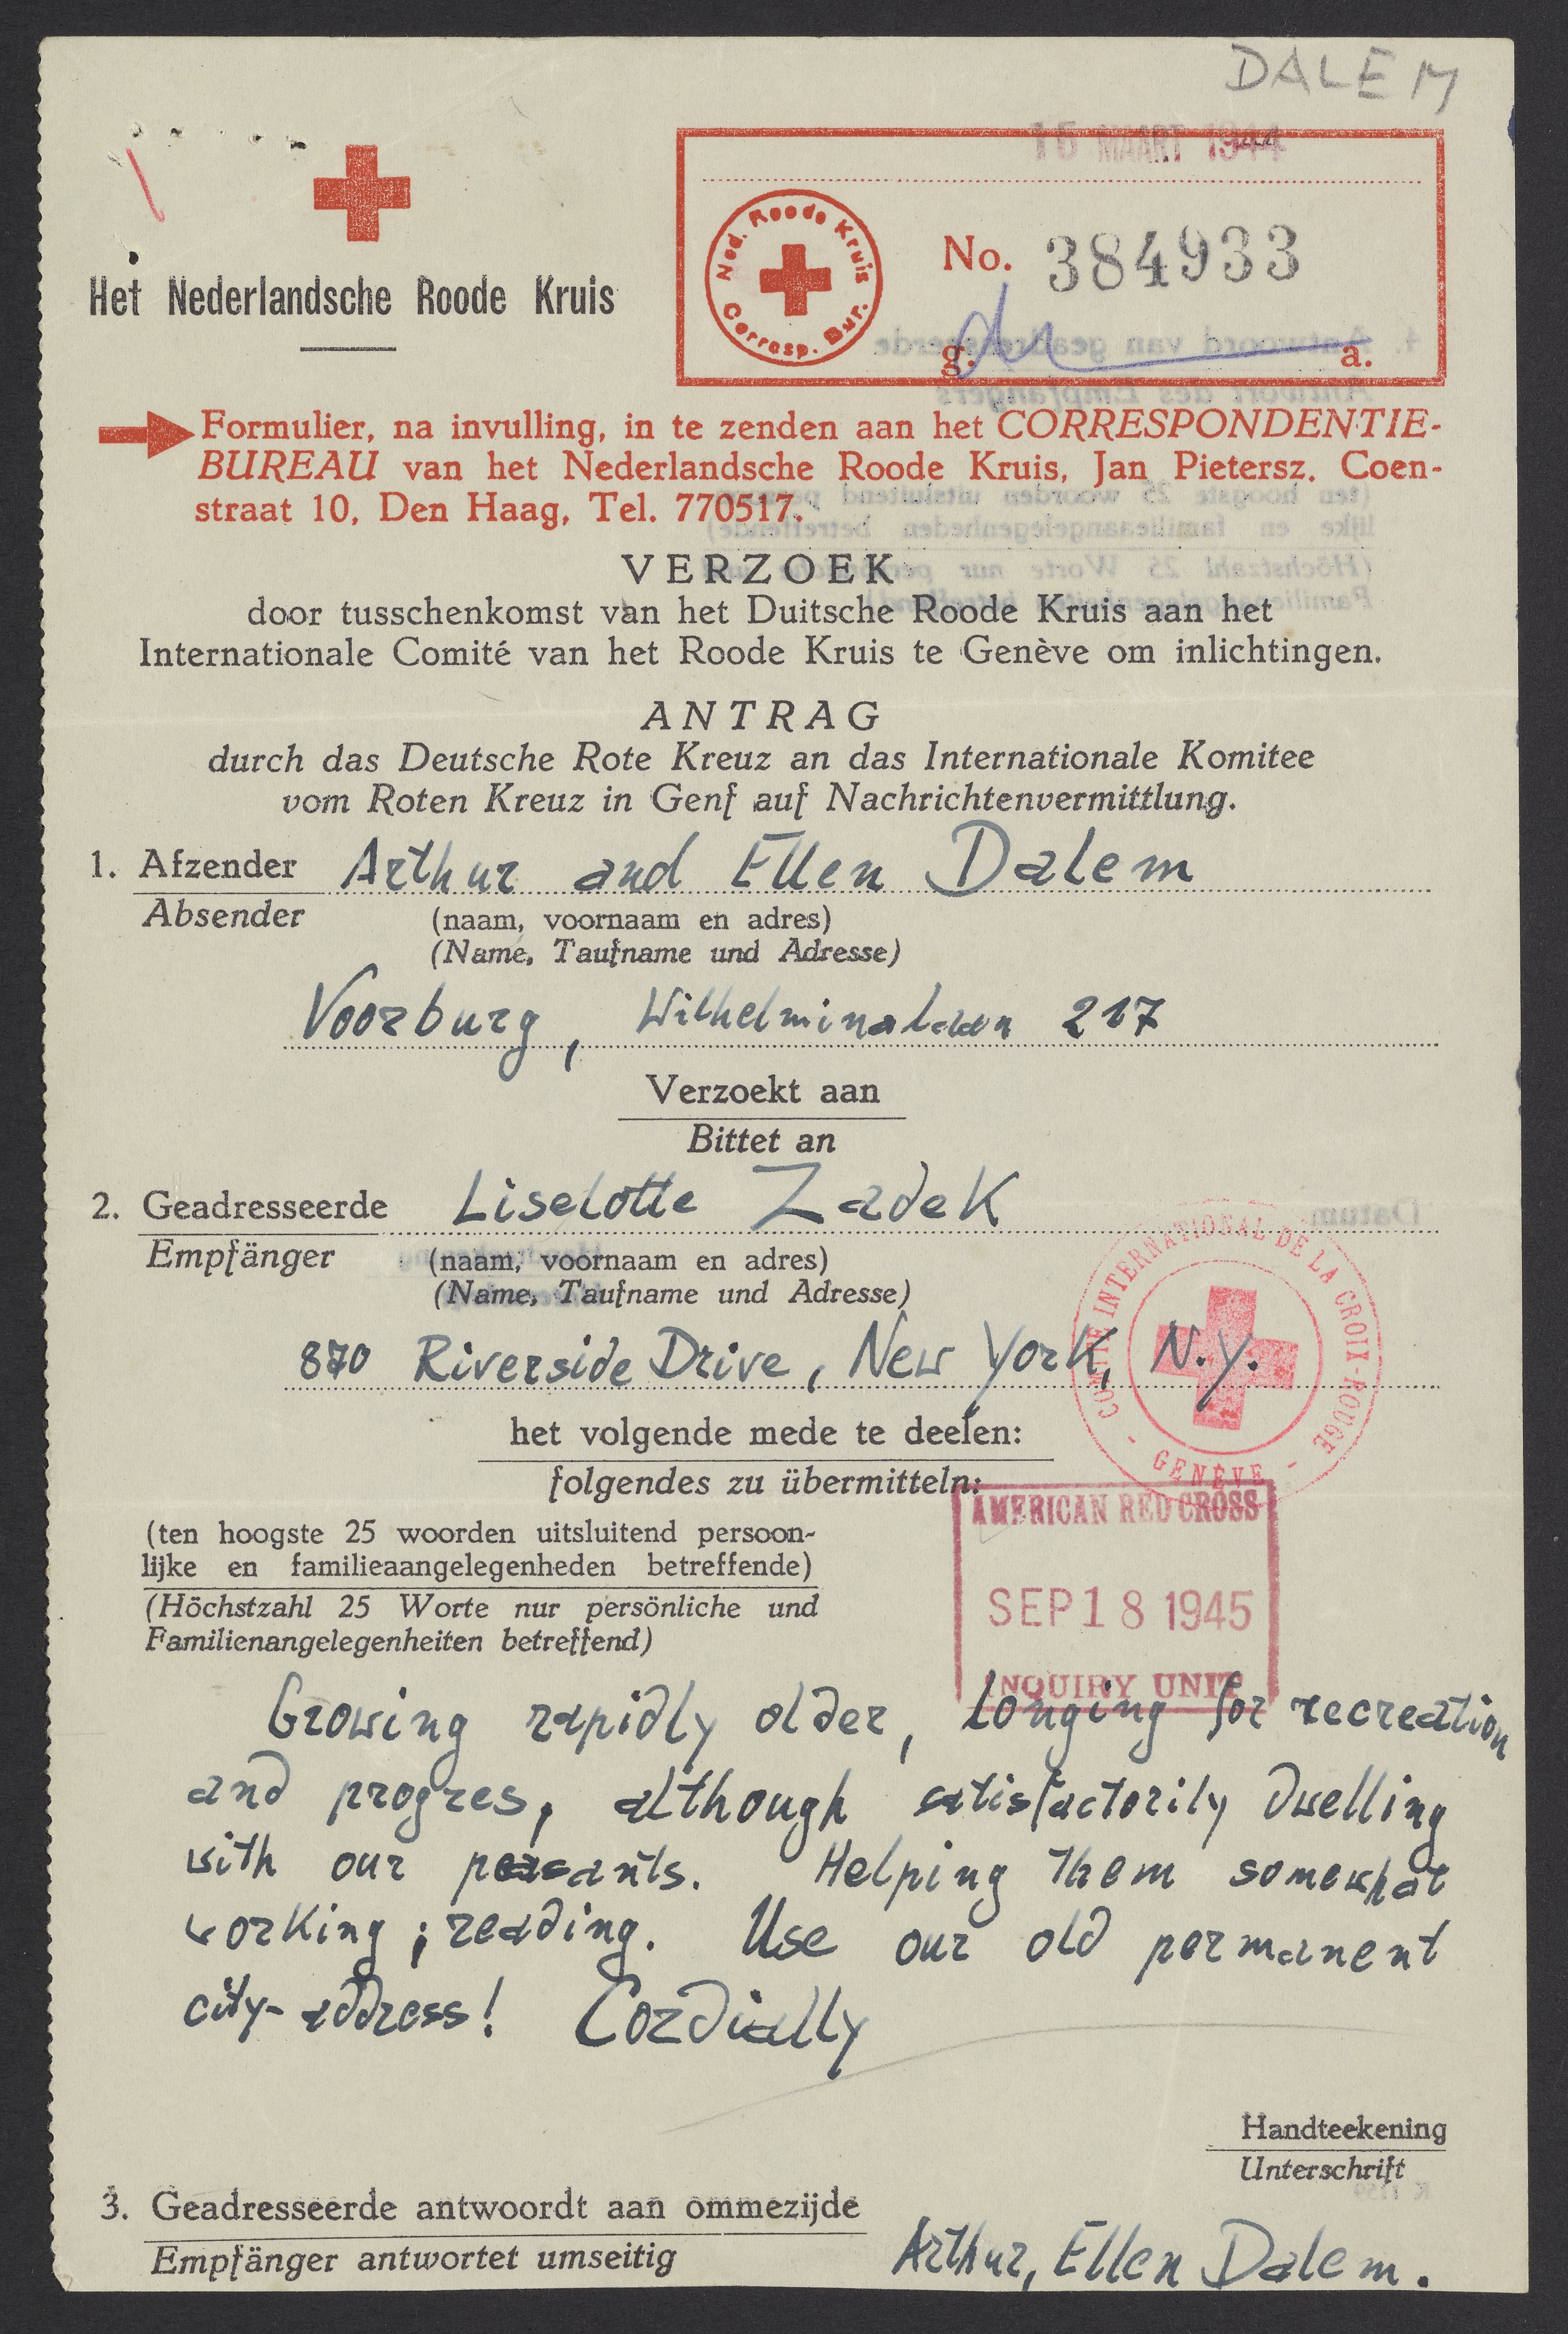 DALEM
15 MAART 1944
Ned. Roode Kruis
Corresp. Bur.
No. 384933
g. a.
Het Nederlandsche Roode Kruis
Formulier, na invulling, in te zenden aan het CORRESPONDENTIE-
BUREAU van het Nederlandsche Roode Kruis, Jan Pietersz. Coen-
straat 10, Den Haag, Tel. 770517.
VERZOEK
door tusschenkomst van het Duitsche Roode Kruis aan het
Internationale Comité van het Roode Kruis te Genève om inlichtingen.
ANTRAG
durch das Deutsche Rote Kreuz an das Internationale Komitee
vom Roten Kreuz in Genf auf Nachrichtenvermittlung.
1. Afzender Arthur and Ellen Dalem
Absender (naam, voornaam en adres)
(Name, Taufname und Adresse)
Voorburg, Wilhelminalaan 217
Verzoekt aan
Bittet an
2. Geadresseerde Liselotte Zadek
Empfänger (naam, voornaam en adres)
(Name, Taufname und Adresse)
870 Riverside Drive, New York, N.Y.
COMITÉ INTERNATIONAL DE LA CROIX-ROUGE - GENÈVE -
het volgende mede te deelen:
folgendes zu übermitteln:
AMERICAN RED CROSS
SEP 18 1945
INQUIRY UNIT
(ten hoogste 25 woorden uitsluitend persoon-
lijke en familieaangelegenheden betreffende)
(Höchstzahl 25 Worte nur persönliche und
Familienangelegenheiten betreffend)
Growing rapidly older, longing for recreation
and progres, although satisfactorily dwelling
with our peasants. Helping them somewhat
working; reading. Use our old permanent
city-address! Cordially
Handteekening
Unterschrift
3. Geadresseerde antwoordt aan ommezijde
Empfänger antwortet umseitig
Arthur, Ellen Dalem.